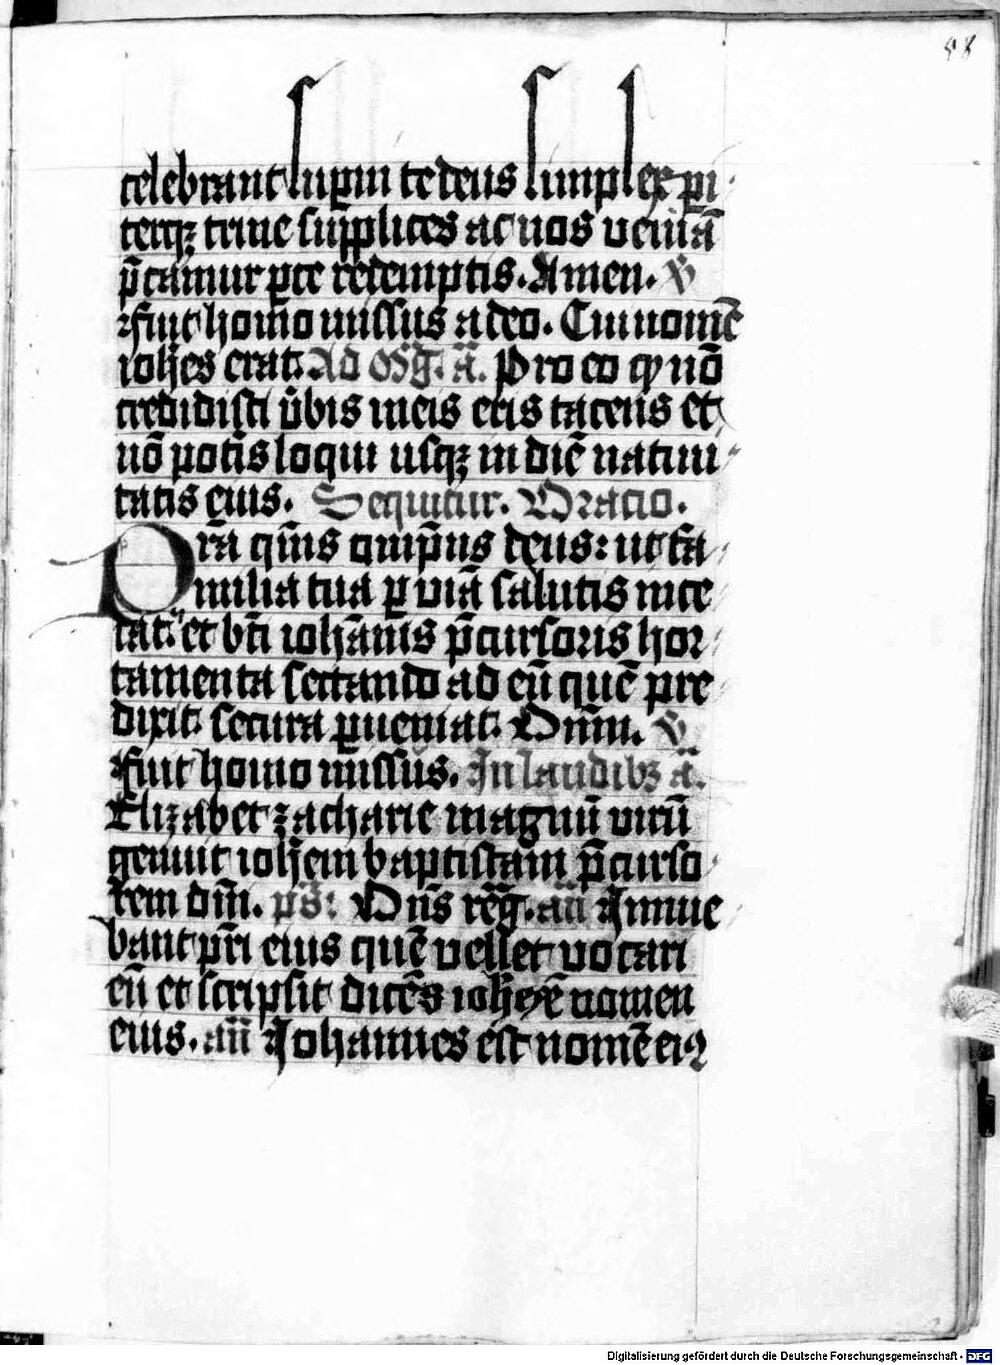 58
celebrant suꝑni te deus simplex pa-
terqꝫ trine supplices ac nos veniā
p̄camur ꝑce redemptis. Amen. ℣
Fuit homo missus a deo. Cui nomē
ioħes erat. Ad Mḡ. ā. Pro eo ꝙ nō
credidisti v̄bis meis eris tacens et
nō pot̄is loqui usqꝫ in diē natiui-
tatis eius. Sequitur. Oracio.
Pr̄a q̄m̄s om̄p̄ns deus: ut fa-
milia tua ꝑ viā salutis ince-
dat: et bt̄i ioh̄anis p̄cursoris hor-
tamenta sectando ad eū quē pre-
dixit. secura ꝑueniat. Dn̄m. ℣
Fuit homo missus. In laudibꝫ ā.
Elizabet zacharie magnū virū
genuit ioħem baptistam p̄curso-
rem dn̄i. ps̄: Dn̄s reḡ. an̄ Innue-
bant pr̄i eius quē vellet vocari
eū et scripsit dicēs ioħes ē nomen
eius. an̄ Johannes est nomē eiꝰ
Digitalisierung gefördert durch die Deutsche Forschungsgemeinschaft - DFG